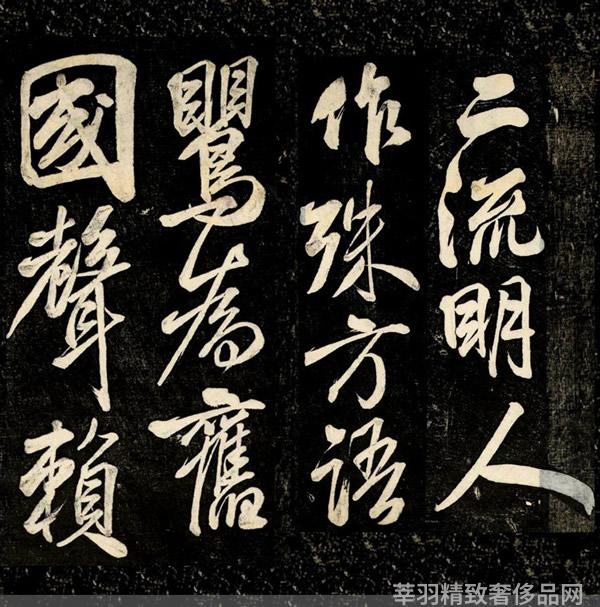 二流明人
作殊方語
鸎為舊
國聲賴
莘羽精致奢侈品网